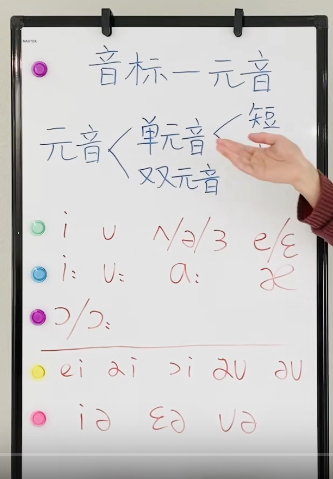 音标一元音
元音 < 单元音 < 短
双元音
i ʊ ʌ/ə/ɜ e/ɛ
i: ʊ: ɑ: æ
ɔ/ɔ:
ei ai ɔi aʊ əʊ
iə ɛə ʊə